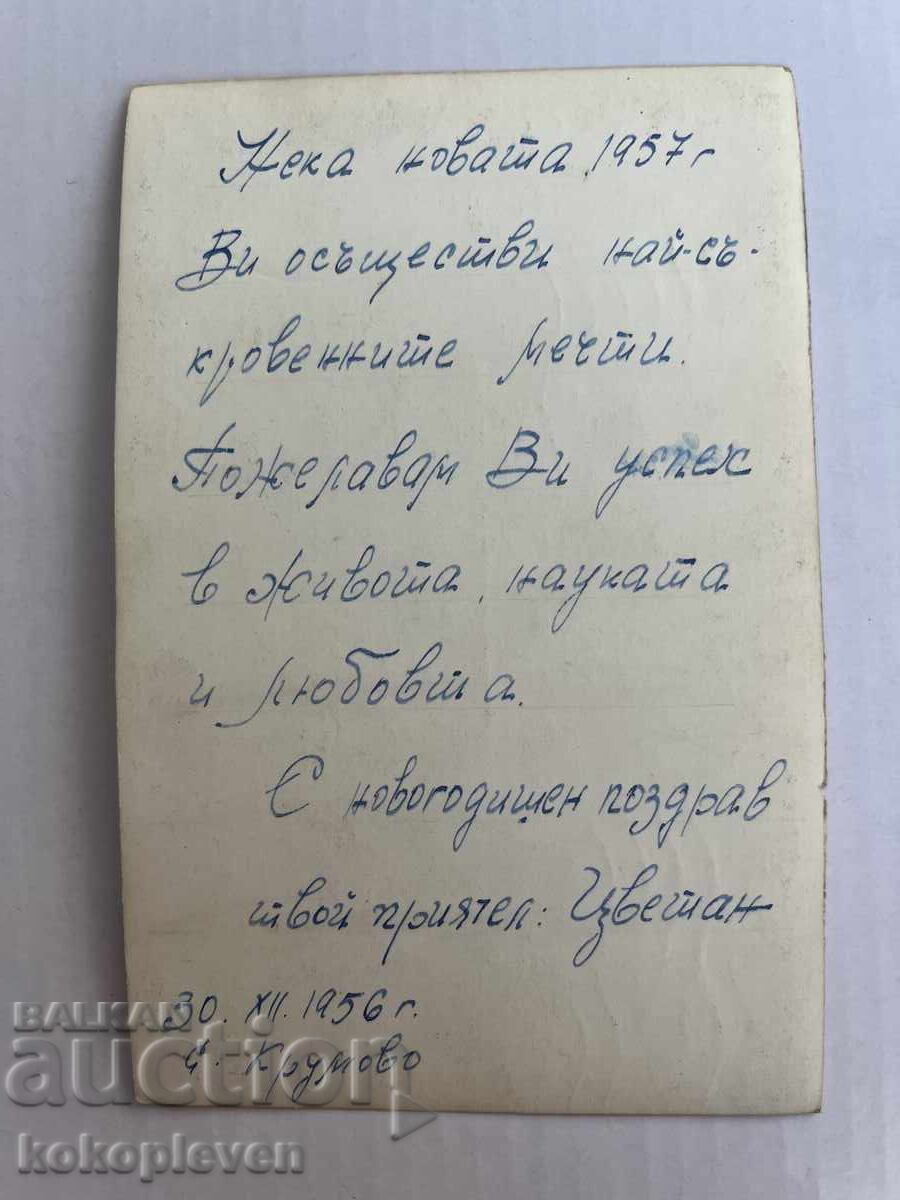 Нека новата 1957 г
Ви осъществи най-съ-
кровенните мечти.
Пожелавам Ви успех
в живота, науката
и любовта.
С новогодишен поздрав
твой приятел: Цветан
30. XII. 1956 г.
с. Крумово
BALKAN
auction
kokopleven